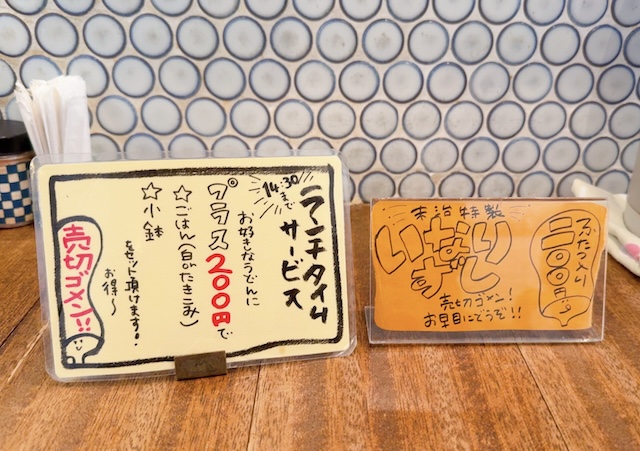 ランチタイム
サービス
14:30まで
お好きなうどんに
プラス200円で
☆ごはん(白orたきこみ)
☆小鉢
をセット頂けます!
お得〜
売切ゴメン!!
本治特製
いなり
ずし
売切ゴメン!
お早目にどうぞ!!
二〇〇円